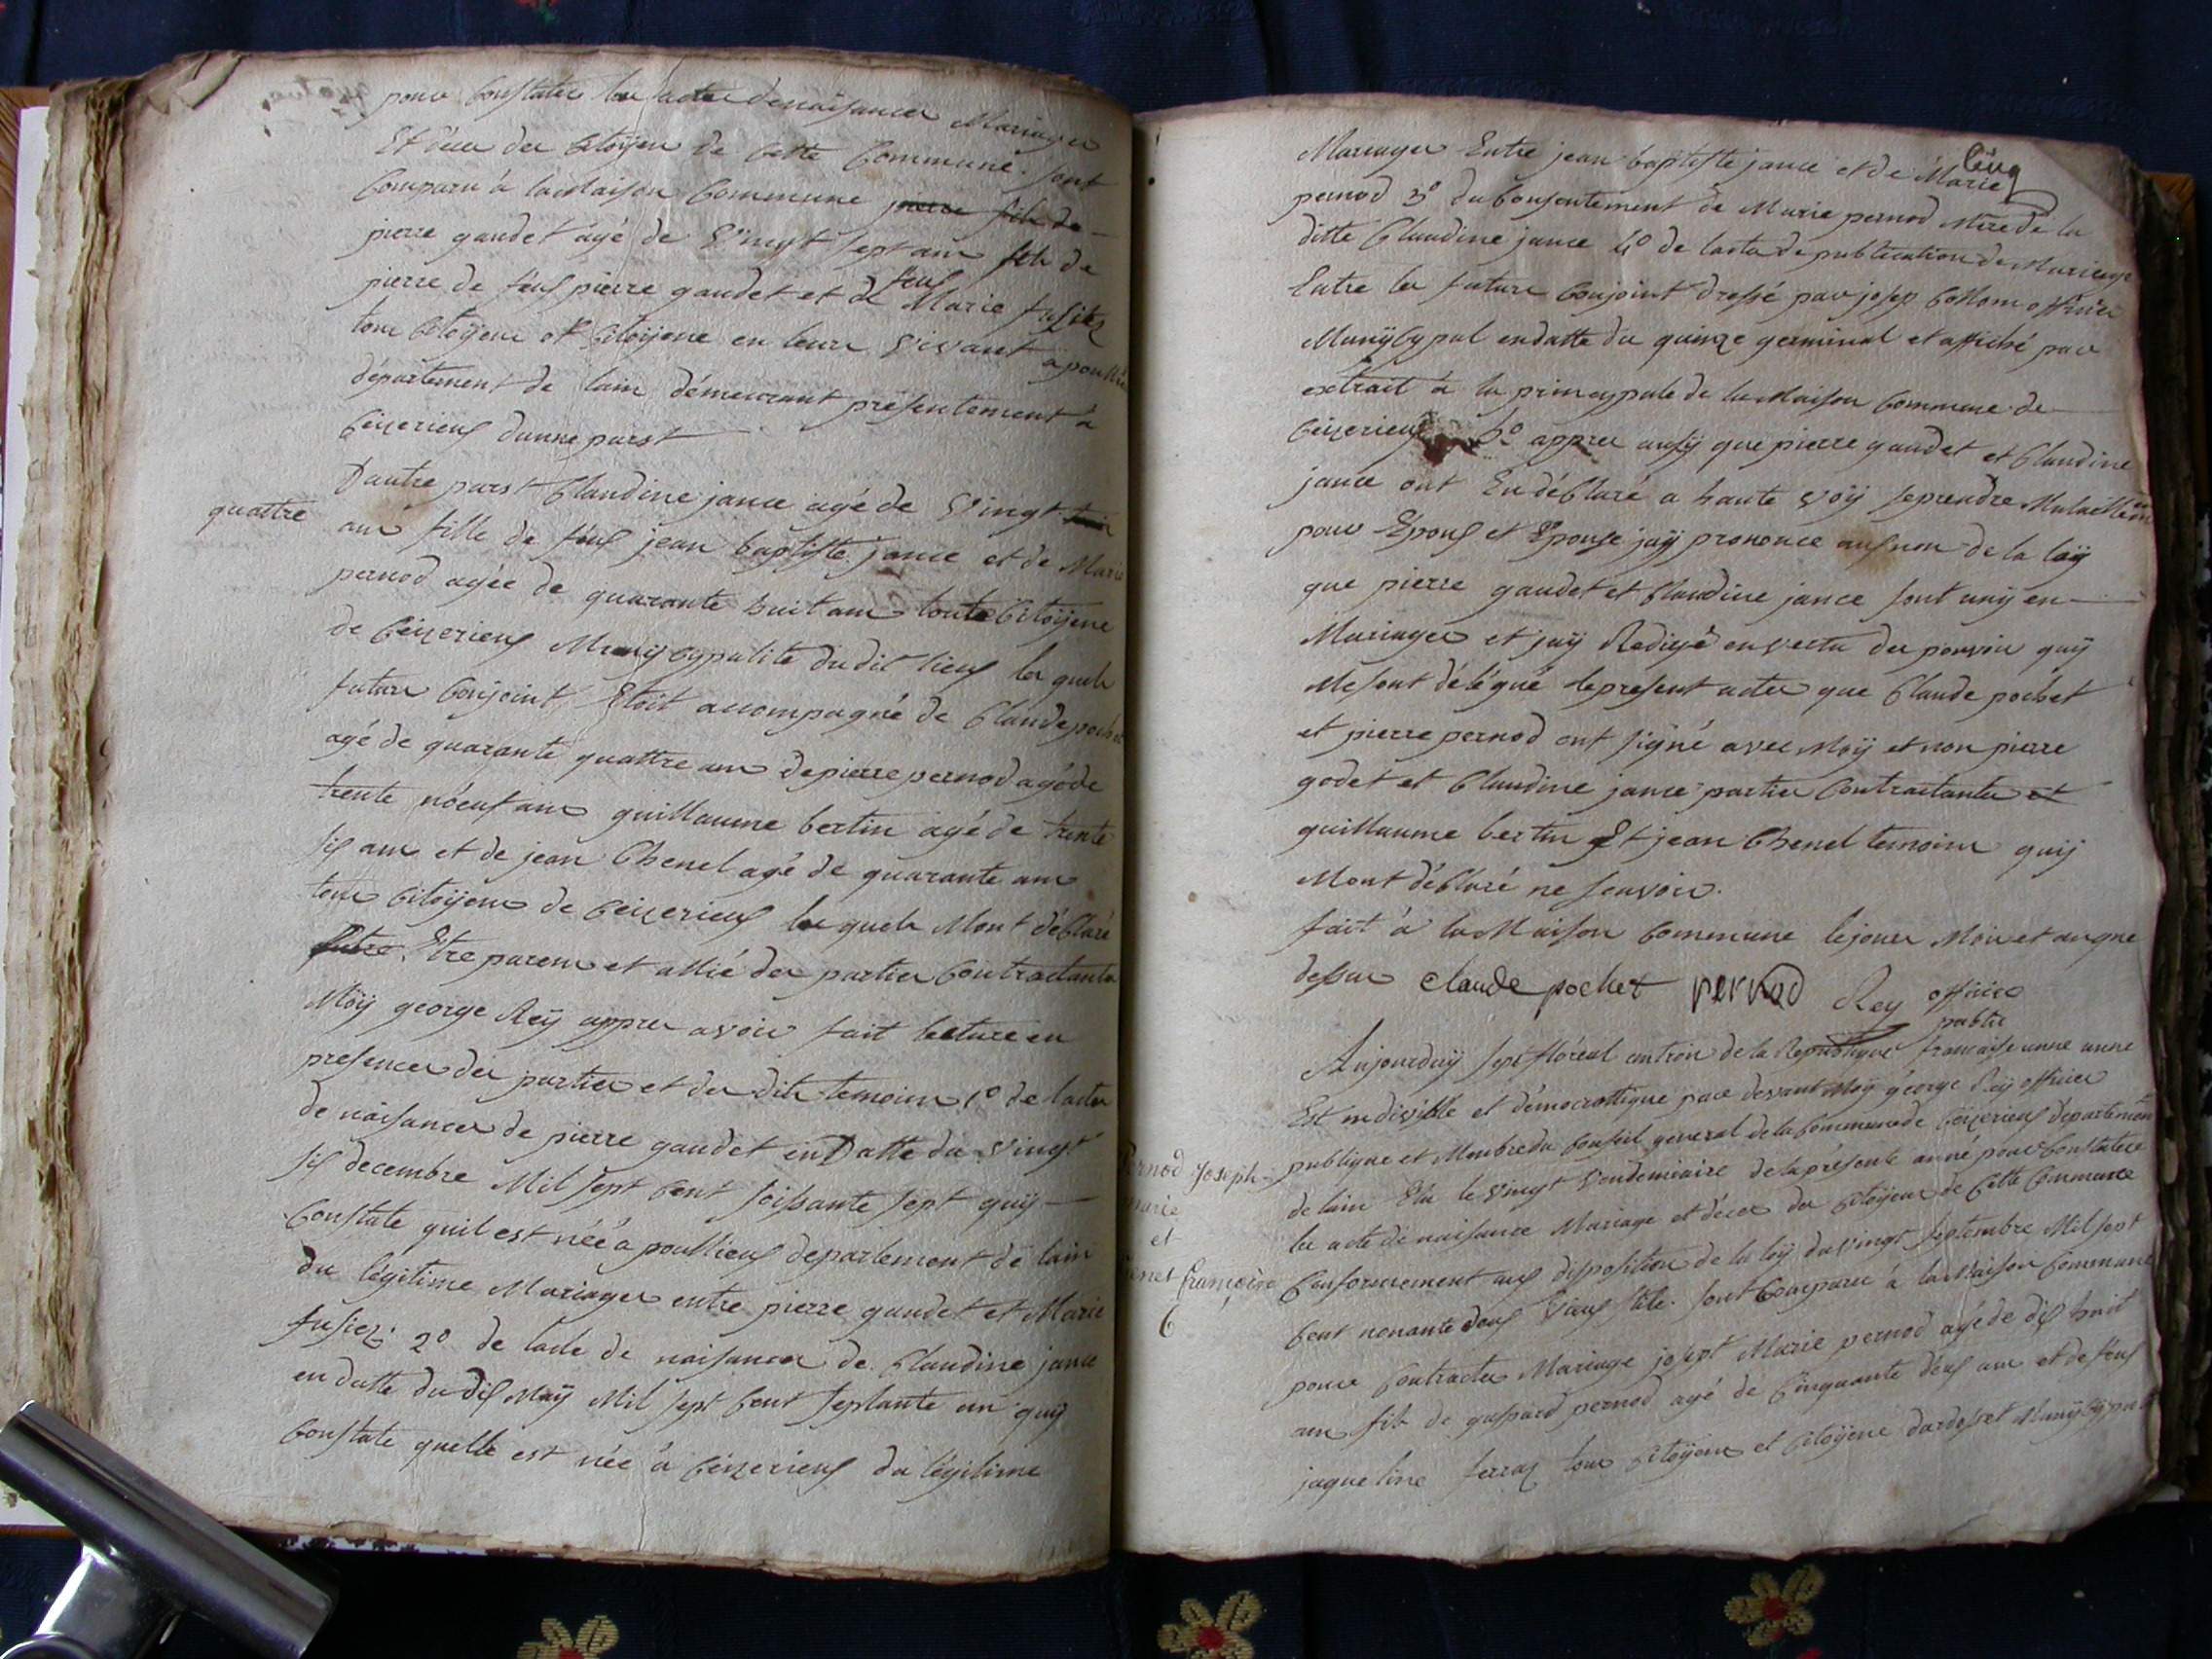 pour Constater les actes de naisances Mariages
Et déces des Citoÿen de Cette Commune. sont
Comparu à la Maison Commune pierre fils de
pierre gaudet âgé de Vingt sept ans fils de
pierre de feuf pierre gaudet et de feue Marie fusiez
tous Citoÿens et Citoÿene en leurs Vivant a poullieu
département de lain démeurant présentement à
Ceizerieuf dunne parst
D'autre parst Claudine jance agé de Vingt trois
quattre
ans fille de feuf jean baptiste jance et de Marie
pernod agée de quarante huit ans toute Citoÿene
de Ceizerieuf Munÿcypalite du dit lieuf les quels
futurs Conjoint Etoit accompagné de Claude pochet
agé de quarante quattre ans de pierre pernod agé de
trente nöeuf ans guillaume bertin agé de trente
sif ans et de jean Chenel agé de quarante ans
tous Citoÿens de Ceizerieuf les quels Mont déClaré
Etre parens et allié des parties Contractantes
Moÿ george Reÿ appres avoir fait lecture en
presences des parties et des dits temoins 1º de lactes
de naisances de pierre gaudet en Datte du Vingt
sif decembre Mil sept Cent soissante sept quÿ
Constate quil est néé à poullieuf departement de lain
du légitime Mariages entre pierre gaudet et Marie
fusiez. 2º de lacte de naisances de Claudine jance
en datte du dif Maÿ Mil sept Cent septante un quÿ
Constate quelle est née à Ceizerieuf du légitime
Cinq
Mariages Entre jean baptiste jance et de Marie
pernod 3º du Consentement de Marie pernod Mère de la
ditte Claudine jance 4º de lacte de publication de Mariage
Entre les futurs Conjoint dressé par josep Collom officier
Munÿcypal en datte du quinze germinal et affiché par
extrait à la princypale de la Maison Commune de
Ceizerieuf 5º appres ausÿ que pierre gaudet et Claudine
jance ont En déClaré a haute Voÿ se prendre Mutuellem
pour Epouf et Epouse jaÿ prononce auf nom de la loÿ
que pierre gaudet et Claudine jance sont unÿ en
Mariages et jaÿ Redigé en vertu des pouvoir quÿ
Me sont délégué le present actes que Claude pochet
et pierre pernod ont signé avec Moÿ et non pierre
godet et Claudine jance parties Contractantes et
guillaume bertin Et jean Chenel temoins quÿ
Mont déClaré ne seavoir.
fait à la Maison Commune le jours Mois et an que
dessus claude pochet pernod Rey officier
public
Aujourduÿ sept floréal an trois de la Republique francaise unne
Est indivisible et démocrattique pare devant Moÿ george Reÿ officier
publique et Menbre du Conseil general de la Commune de Ceizerieuf departemen
de lain Elu le Vingt Vendemiaire de la présente anné pour Constater
les acte de naisance Mariage et déces des Citoÿens de Cette Commune
Conformement auf disposition de la loÿ du vingt septembre Mil sept
Cent nonante deuf Vieuf stile. sont Comparu à la Maison Commune
pour Contracter Mariage josept Marie pernod agé de dif huit
ans fils de guspard pernod agé de Cinquante deuf ans et de feuf
jaqueline ferraz tous Citoÿens et Citoÿene dardosset Munÿcypa
Pernod Joseph-
marie
et
françoise
6